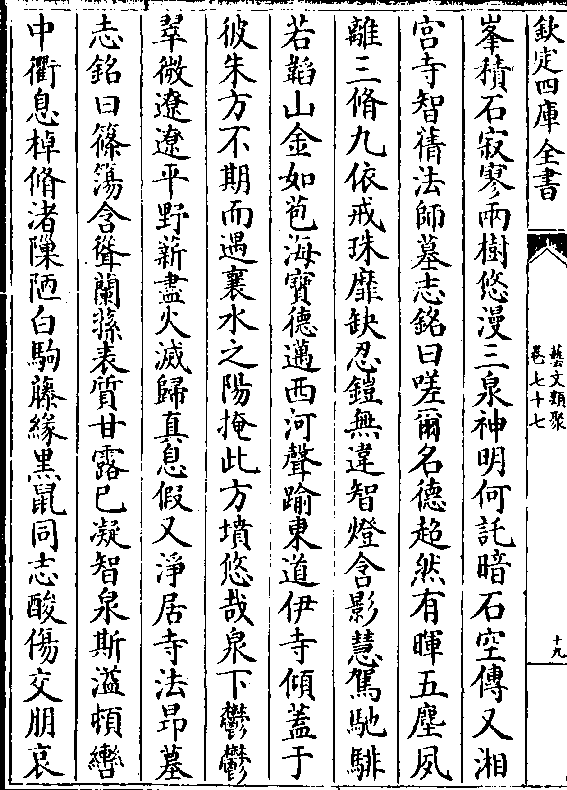 欽定四庫全書
藝文類聚
卷七十七
十九
峯積石寂寥兩樹悠漫三泉神明何託暗石空傳又湘
宫寺智蒨法師墓志銘曰嗟爾名德超然有暉五塵夙
離三脩九依戒珠靡缺忍鎧無違智燈含影慧駕馳騑
若韜山金如苞海寶德邁西河聲踰東道伊寺傾蓋于
彼朱方不期而遇襄水之陽掩此方墳悠哉泉下鬱鬱
翠微遼遼平野薪盡火滅歸真息假又淨居寺法昂墓
志銘曰篠簜含聳蘭蓀表質甘露已凝智泉斯溢頓轡
中衢息棹脩渚隟陋白駒藤緣黒鼠同志酸傷交朋哀